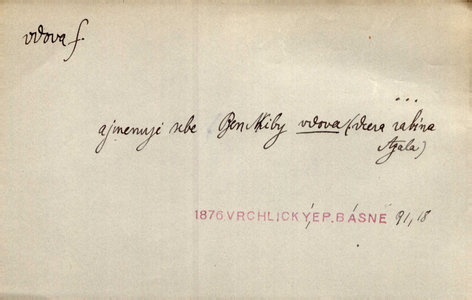 vdova f.
...
a jmenuje sebe Ben Akiby vdova (dcera rabína
Azala)
1876 VRCHLICKÝ, EP. BÁSNĚ 91, 18